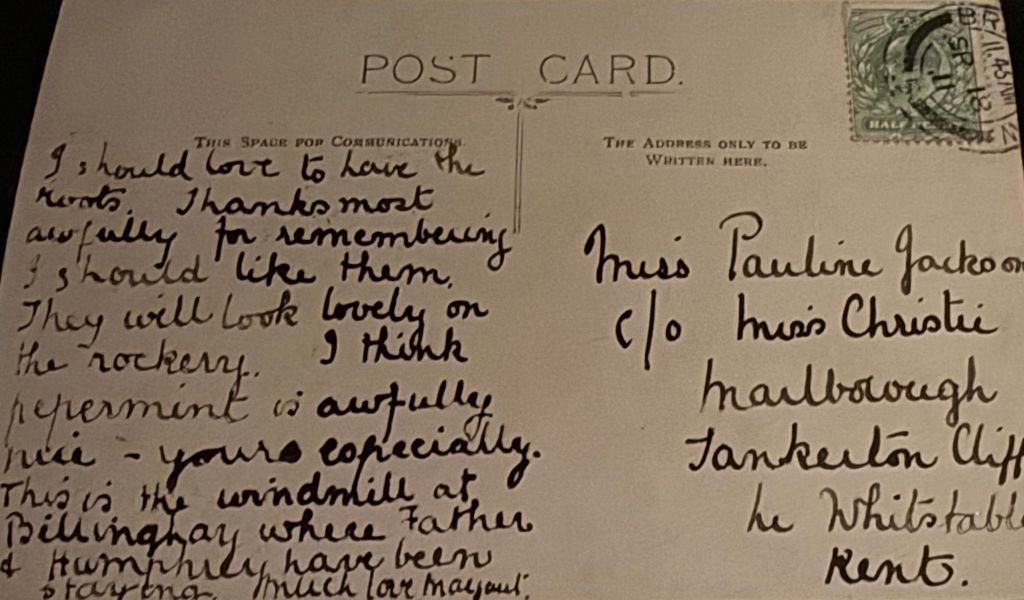 POST CARD.
THIS SPACE FOR COMMUNICATIONS.
I should love to have the
roots. Thanks most
awfully for remembering
I should like them.
They will look lovely on
the rockery. I think
pepermint is awfully
nice - yours especially.
This is the windmill at
Billinghay where Father
& Humphrey have been
staying. Much love
THE ADDRESS ONLY TO BE
WRITTEN HERE.
Miss Pauline Jackson
c/o Miss Christie
Marlborough
Tankerton Cliff
Whitstable
Kent.
HALF
BR
11.45AM
SP 18
11